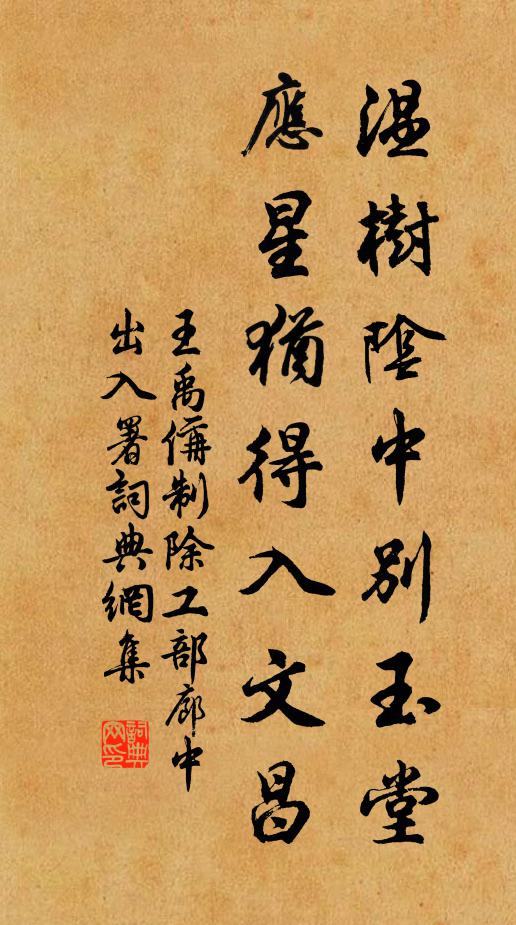 温樹陰中別玉堂
應星猶得入文昌
王禹偁制除工部廊中
出入署詞典網集
詞典网印